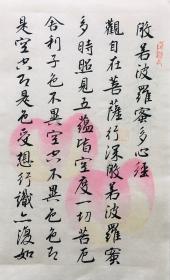 般若波羅蜜多心經
觀自在菩薩行深般若波羅蜜
多時照見五蘊皆空度一切苦厄
舍利子色不異空空不異色色即
是空空即是色受想行識亦復如